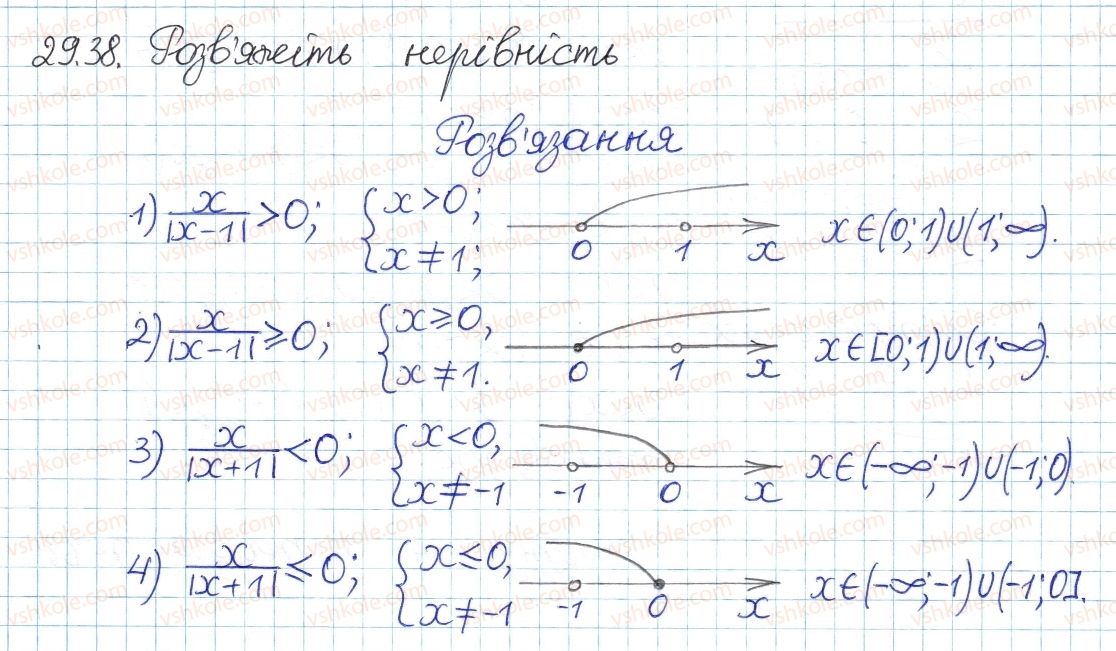 29.38. Розв'яжіть нерівність
Розв'язання
1) x/|x-1| > 0; { x > 0; x ≠ 1; 0 1 x x ∈ (0; 1) ∪ (1; ∞).
2) x/|x-1| ≥ 0; { x ≥ 0, x ≠ 1. 0 1 x x ∈ [0; 1) ∪ (1; ∞).
3) x/|x+1| < 0; { x < 0, x ≠ -1 -1 0 x x ∈ (-∞; -1) ∪ (-1; 0).
4) x/|x+1| ≤ 0; { x ≤ 0, x ≠ -1 -1 0 x x ∈ (-∞; -1) ∪ (-1; 0].